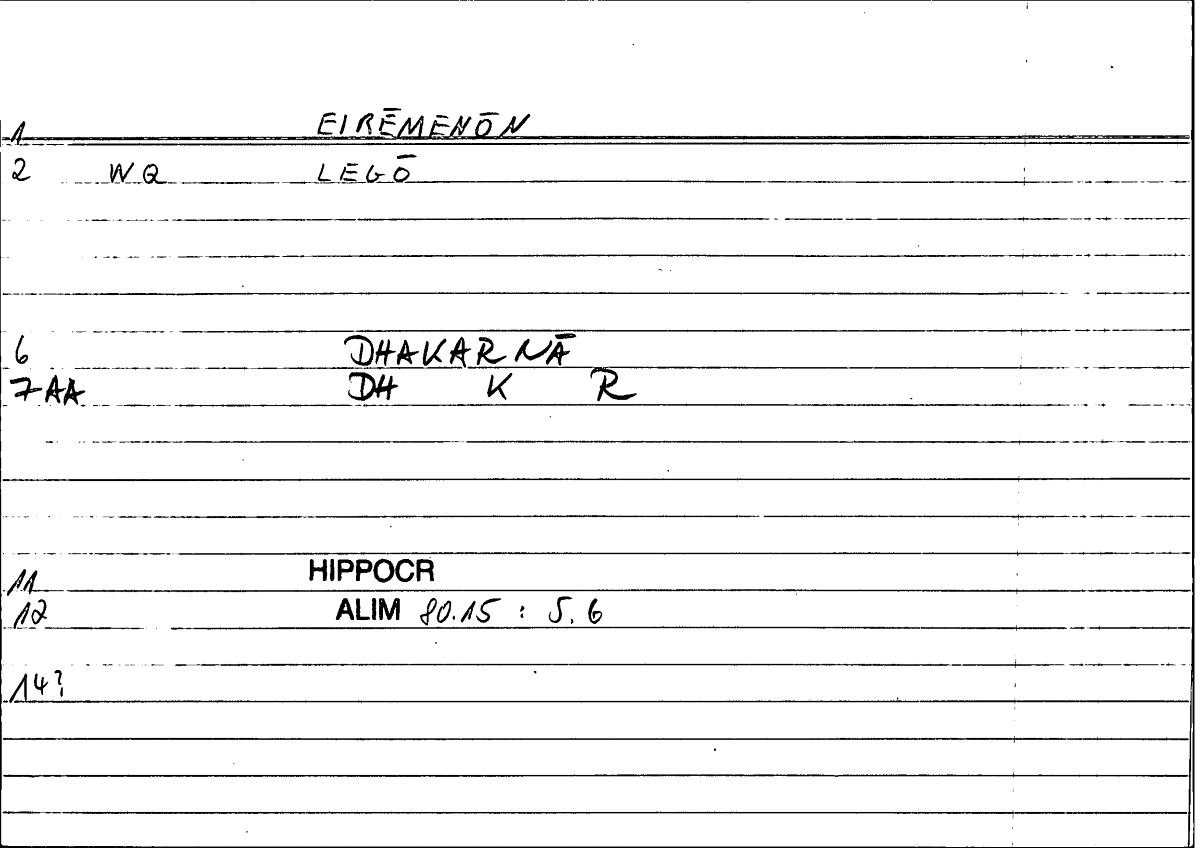 1 EIRĒMENŌN
2 WQ LEGŌ
6 DHAKARNĀ
7AA DH K R
11 HIPPOCR
12 ALIM 80.15 : 5.6
14?